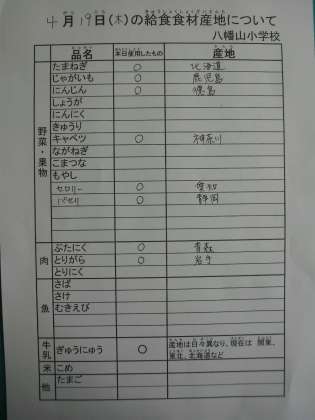 4月19日(木)の給食食材産地について
八幡山小学校
品名 本日使用したもの 産地
野菜・果物
たまねぎ ○ 北海道
じゃがいも ○ 鹿児島
にんじん ○ 徳島
しょうが
にんにく
きゅうり
キャベツ ○ 神奈川
ながねぎ
こまつな
もやし
セロリー ○ 愛知
パセリ ○ 静岡
肉
ぶたにく ○ 青森
とりがら ○ 岩手
とりにく
魚
さば
さけ
むきえび
牛乳 ぎゅうにゅう ○ 産地は日々異なり、現在は 関東、
東北、北海道など
米 こめ
他 たまご